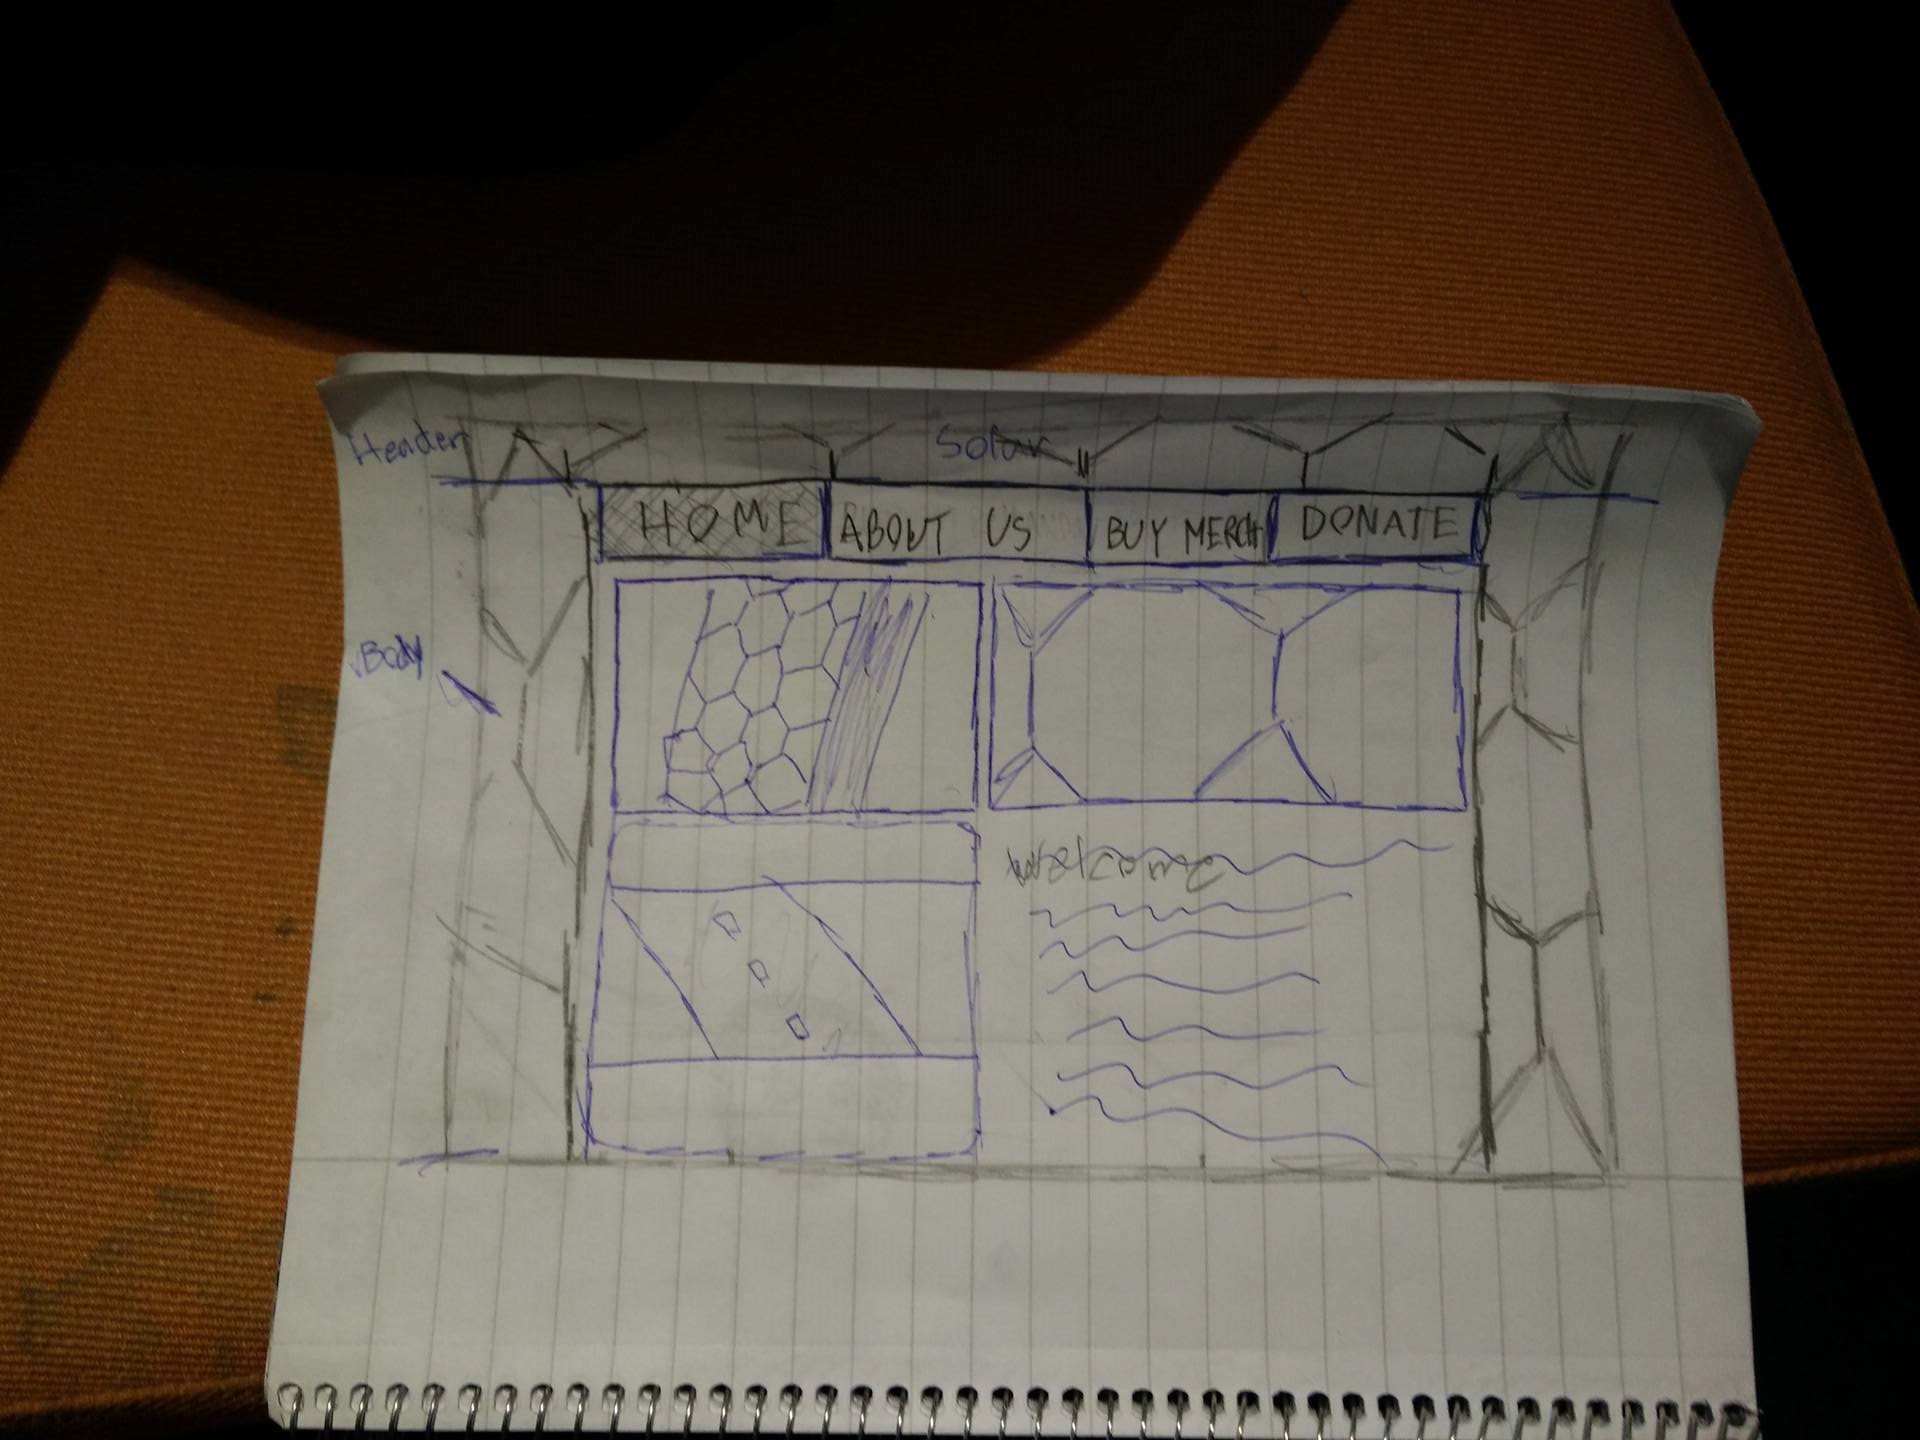 Header
Solar
HOME ABOUT US BUY MERCH DONATE
Body